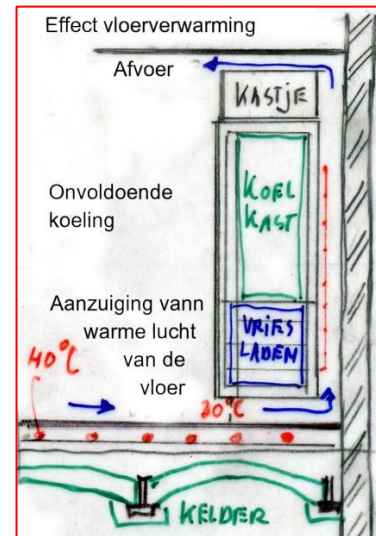 Effect vloerverwarming
Afvoer
KASTJE
KOEL
KAST
Onvoldoende
koeling
Aanzuiging vann
warme lucht
van de
vloer
VRIES
LADEN
40°C
20°C
KELDER